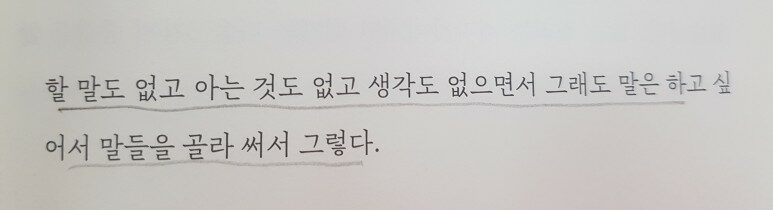 할 말도 없고 아는 것도 없고 생각도 없으면서 그래도 말은 하고 싶
어서 말들을 골라 써서 그렇다.